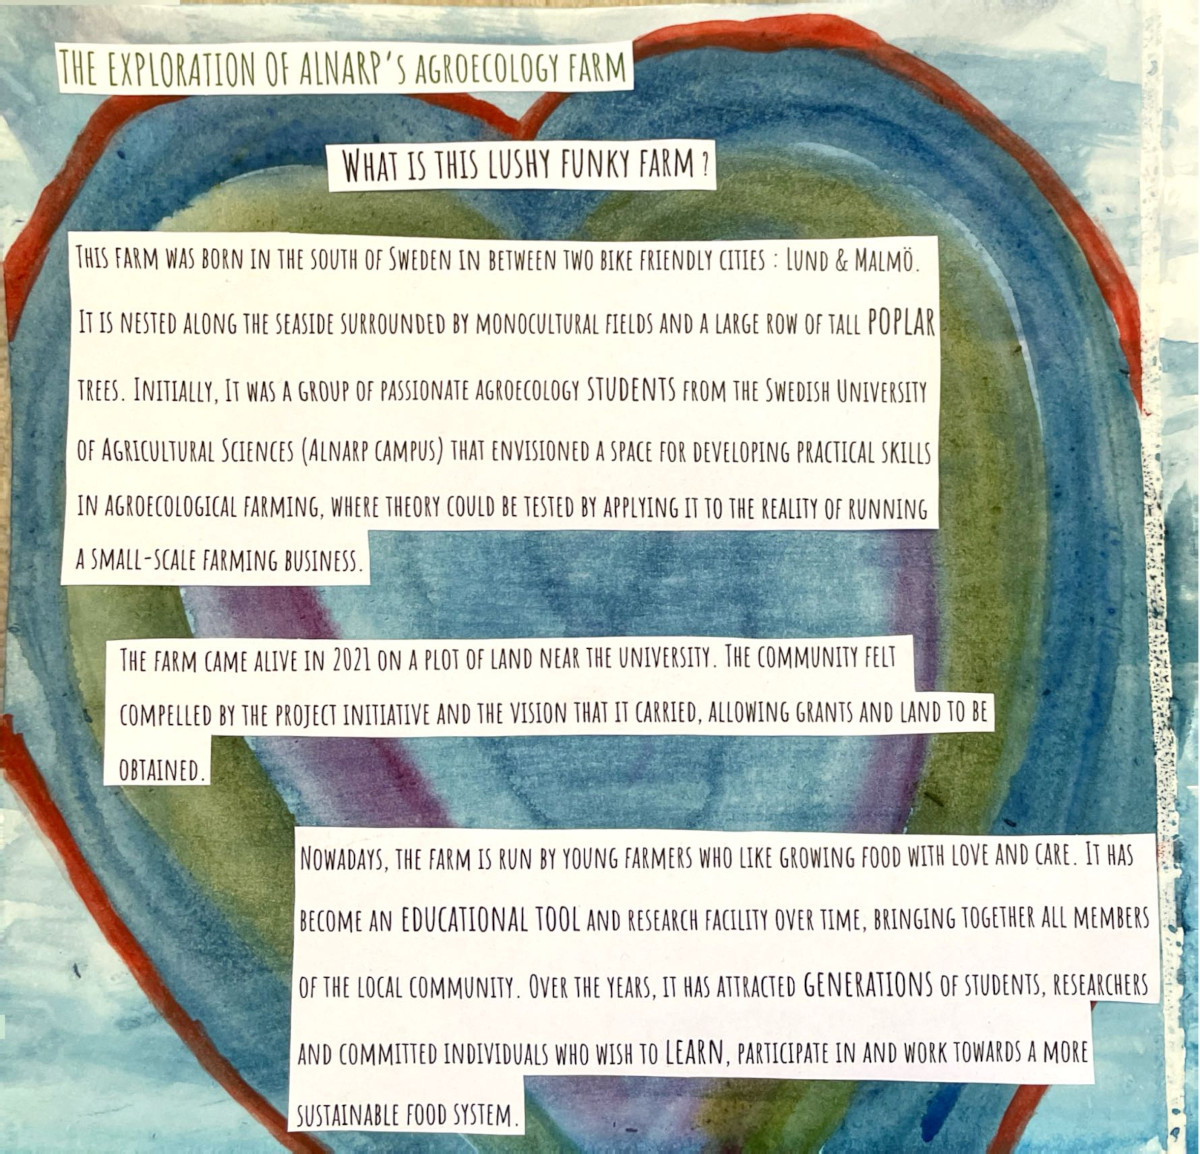 THE EXPLORATION OF ALNARP'S AGROECOLOGY FARM
WHAT IS THIS LUSHY FUNKY FARM ?
THIS FARM WAS BORN IN THE SOUTH OF SWEDEN IN BETWEEN TWO BIKE FRIENDLY CITIES : LUND & MALMÖ.
IT IS NESTED ALONG THE SEASIDE SURROUNDED BY MONOCULTURAL FIELDS AND A LARGE ROW OF TALL POPLAR
TREES. INITIALLY, IT WAS A GROUP OF PASSIONATE AGROECOLOGY STUDENTS FROM THE SWEDISH UNIVERSITY
OF AGRICULTURAL SCIENCES (ALNARP CAMPUS) THAT ENVISIONED A SPACE FOR DEVELOPING PRACTICAL SKILLS
IN AGROECOLOGICAL FARMING, WHERE THEORY COULD BE TESTED BY APPLYING IT TO THE REALITY OF RUNNING
A SMALL-SCALE FARMING BUSINESS.
THE FARM CAME ALIVE IN 2021 ON A PLOT OF LAND NEAR THE UNIVERSITY. THE COMMUNITY FELT
COMPELLED BY THE PROJECT INITIATIVE AND THE VISION THAT IT CARRIED, ALLOWING GRANTS AND LAND TO BE
OBTAINED.
NOWADAYS, THE FARM IS RUN BY YOUNG FARMERS WHO LIKE GROWING FOOD WITH LOVE AND CARE. IT HAS
BECOME AN EDUCATIONAL TOOL AND RESEARCH FACILITY OVER TIME, BRINGING TOGETHER ALL MEMBERS
OF THE LOCAL COMMUNITY. OVER THE YEARS, IT HAS ATTRACTED GENERATIONS OF STUDENTS, RESEARCHERS
AND COMMITTED INDIVIDUALS WHO WISH TO LEARN, PARTICIPATE IN AND WORK TOWARDS A MORE
SUSTAINABLE FOOD SYSTEM.